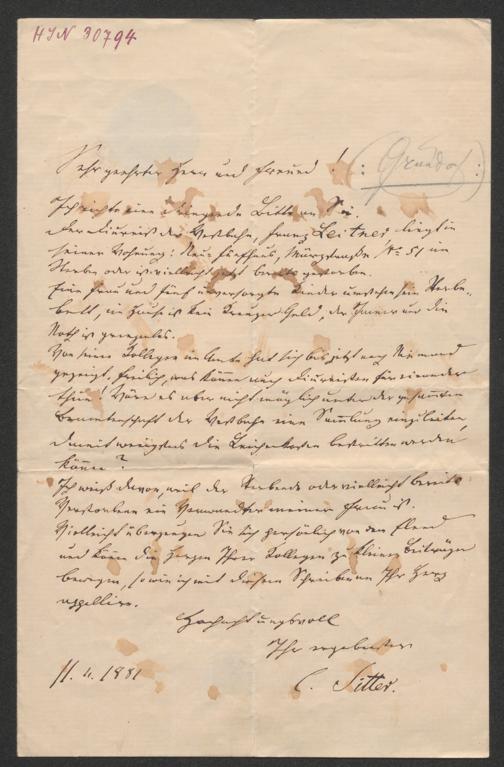 HIN 30794
Sehr geehrter Herr und Freund!
(: Grundorf :)
Ich richte eine dringende Bitte an Sie.
Der Diurnist der Westbahn, Franz Leitner liegt in
seiner Wohnung: Neu Fünfhaus, Märzstraße No 51 im
Sterben oder ist vielleicht jetzt bereits gestorben.
Eine Frau und fünf unversorgte Kinder umstehen sein Sterbe-
bett, im Hause ist kein Kreuzer Geld, der Jammer und die
Noth ist grenzenlos.
Von seinen Collegen im Amte hat sich bis jetzt noch Niemand
gezeigt, freilich, was können auch Diurnisten für einander
thun! Wäre es aber nicht möglich unter der gesammten
Beamtenschaft der Westbahn eine Sammlung einzuleiten,
damit wenigstens die Leichenkosten bestritten werden
können?
Ich weiß davon, weil der Sterbende oder vielleicht bereits
Verstorbene ein Verwandter meiner Frau ist.
Vielleicht überzeugen Sie sich persönlich von dem Elend
und können die Herzen Ihrer Collegen zu kleinen Beiträgen
bewegen, sowie ich mit diesem Schreiben an Ihr Herz
appellire.
Hochachtungsvoll
Ihr ergebenster
C. Sitter.
11. 4. 1881